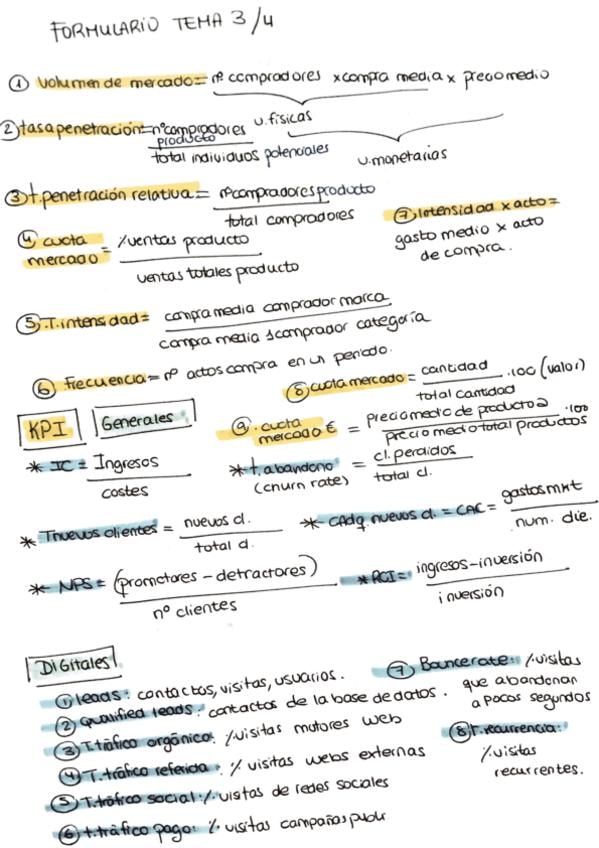 FORMULARIO TEMA 3/4
① Volumen de mercado = nº compradores x compra media x precio medio
u. físicas
u. monetarias
② tasa penetración = nº compradores producto
total individuos potenciales
③ t. penetración relativa = nº compradores producto
total compradores
④ cuota mercado = % ventas producto
ventas totales producto
⑦ Intensidad x acto =
gasto medio x acto
de compra.
⑤ T. intensidad = compra media comprador marca
compra media comprador categoría
⑥ Frecuencia = nº actos compra en un periodo.
⑧ cuota mercado = cantidad .100 (valor)
total cantidad
⑨ cuota mercado € = precio medio de producto .100
precio medio total productos
KPI Generales
* IC = Ingresos
costes
* t. abandono = cl. perdidos
(churn rate) total cl.
* T nuevos clientes = nuevos cl.
total cl.
* CAdq. nuevos cl. = CAC = gastos mkt
num. clie.
* NPS = (promotores - detractores)
nº clientes
* ROI = ingresos - inversión
inversión
Digitales
① leads: contactos, visitas, usuarios.
② Qualified leads: contactos de la base de datos.
③ T. tráfico orgánico: % visitas motores web
④ T. tráfico referido: % visitas webs externas
⑤ T. tráfico social: % visitas de redes sociales
⑥ t. tráfico pago: % visitas campañas publi
⑦ Bounce rate: % visitas
que abandonan
a pocos segundos
⑧ T. recurrencia:
% visitas
recurrentes.